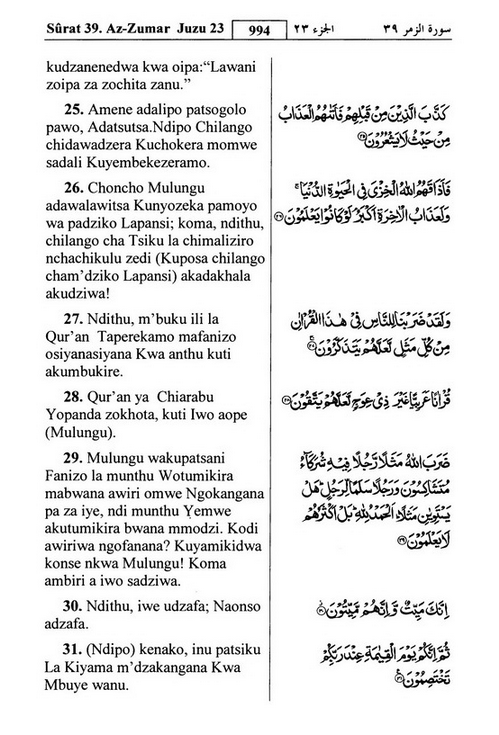 Sûrat 39. Az-Zumar Juzu 23 994 الجزء ٢٣ سورة الزمر ٣٩
kudzanenedwa kwa oipa:“Lawani
zoipa za zochita zanu.”
25. Amene adalipo patsogolo
pawo, Adatsutsa.Ndipo Chilango
chidawadzera Kuchokera momwe
sadali Kuyembekezeramo.
كَذَّبَ الَّذِينَ مِن قَبْلِهِمْ فَأَتَىٰهُمُ الْعَذَابُ
مِنْ حَيْثُ لَا يَشْعُرُونَ ﴿٢٥﴾
26. Choncho Mulungu
adawalawitsa Kunyozeka pamoyo
wa padziko Lapansi; koma, ndithu,
chilango cha Tsiku la chimaliziro
nchachikulu zedi (Kuposa chilango
cham’dziko Lapansi) akadakhala
akudziwa!
فَأَذَاقَهُمُ اللَّهُ الْخِزْيَ فِي الْحَيَوٰةِ الدُّنْيَا ۖ
وَلَعَذَابُ الْآخِرَةِ أَكْبَرُ لَوْ كَانُوا يَعْلَمُونَ ﴿٢٦﴾
27. Ndithu, m’buku ili la
Qur’an Taperekamo mafanizo
osiyanasiyana Kwa anthu kuti
akumbukire.
وَلَقَدْ ضَرَبْنَا لِلنَّاسِ فِي هَٰذَا الْقُرْآنِ
مِن كُلِّ مَثَلٍ لَّعَلَّهُمْ يَتَذَكَّرُونَ ﴿٢٧﴾
28. Qur’an ya Chiarabu
Yopanda zokhota, kuti Iwo aope
(Mulungu).
قُرْآنًا عَرَبِيًّا غَيْرَ ذِي عِوَجٍ لَّعَلَّهُمْ يَتَّقُونَ ﴿٢٨﴾
29. Mulungu wakupatsani
Fanizo la munthu Wotumikira
mabwana awiri omwe Ngokangana
pa za iye, ndi munthu Yemwe
akutumikira bwana mmodzi. Kodi
awiriwa ngofanana? Kuyamikidwa
konse nkwa Mulungu! Koma
ambiri a iwo sadziwa.
ضَرَبَ اللَّهُ مَثَلًا رَّجُلًا فِيهِ شُرَكَاءُ
مُتَشَاكِسُونَ وَرَجُلًا سَلَمًا لِّرَجُلٍ هَلْ
يَسْتَوِيَانِ مَثَلًا الْحَمْدُ لِلَّهِ بَلْ أَكْثَرُهُمْ
لَا يَعْلَمُونَ ﴿٢٩﴾
30. Ndithu, iwe udzafa; Naonso
adzafa.
إِنَّكَ مَيِّتٌ وَإِنَّهُم مَّيِّتُونَ ﴿٣٠﴾
31. (Ndipo) kenako, inu patsiku
La Kiyama m’dzakangana Kwa
Mbuye wanu.
ثُمَّ إِنَّكُمْ يَوْمَ الْقِيَٰمَةِ عِندَ رَبِّكُمْ
تَخْتَصِمُونَ ﴿٣١﴾